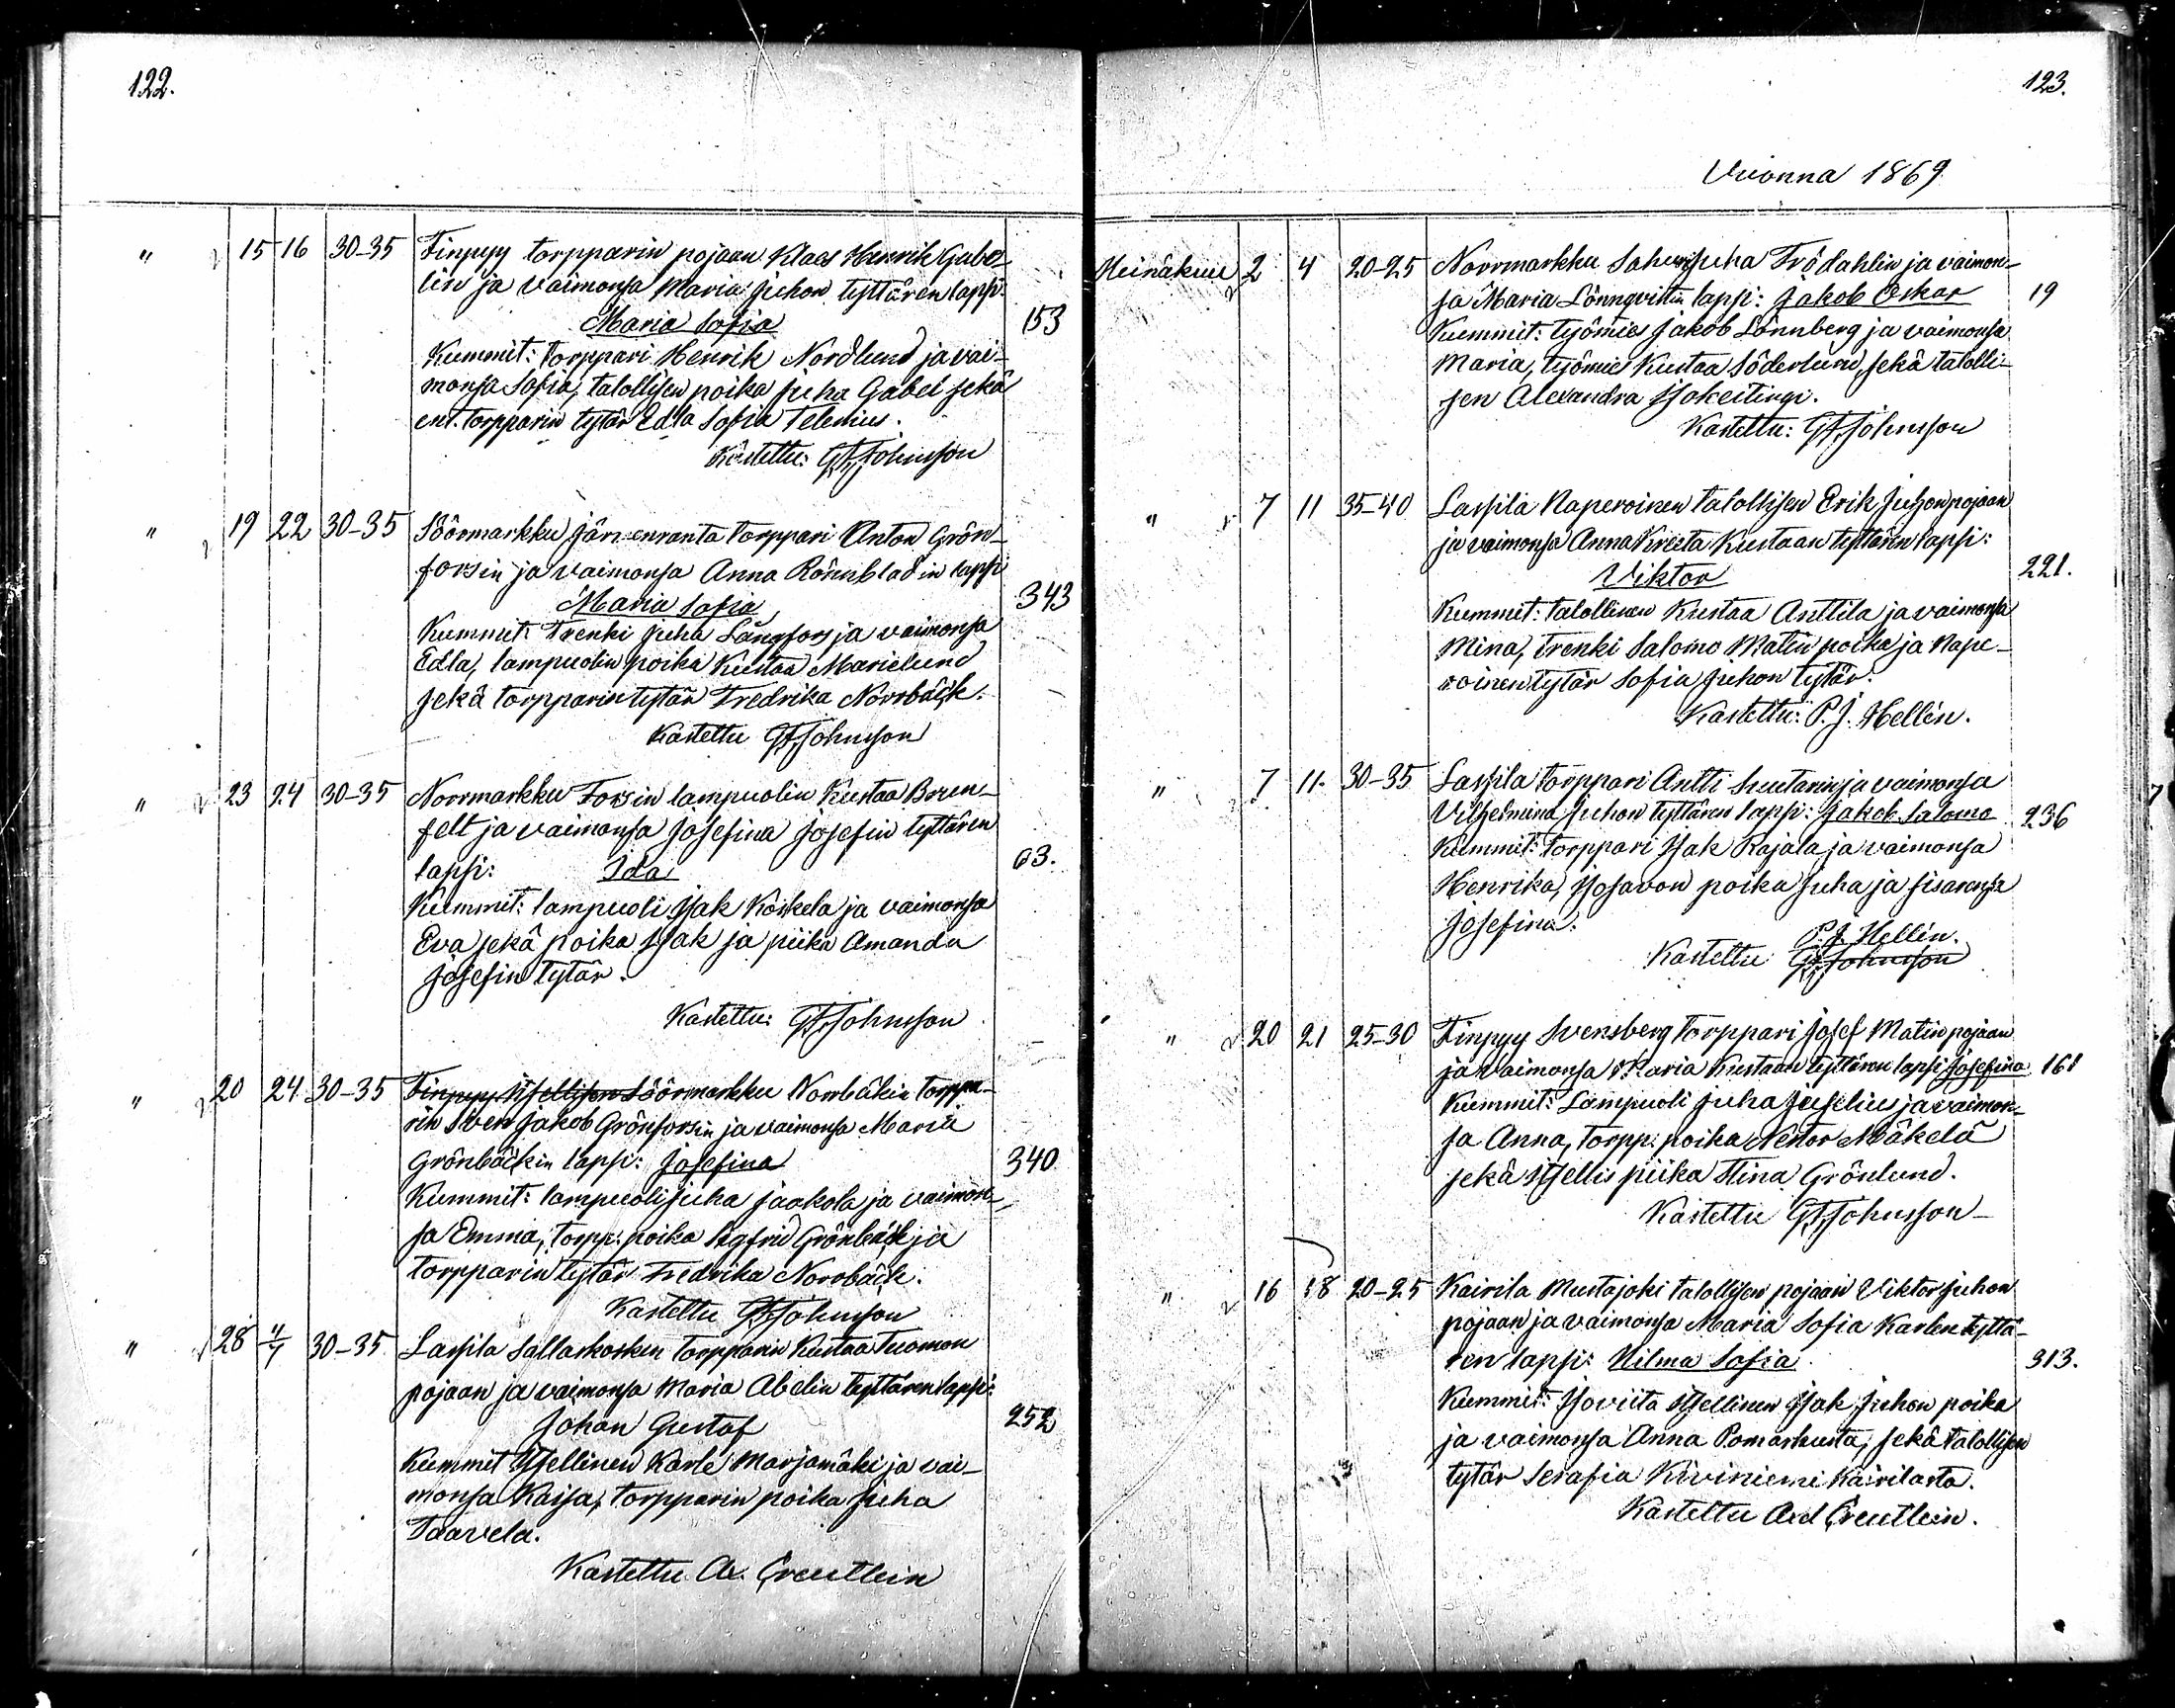 122.
" 15 16 30-35 Finpyy torpparin pojaan Klaes Henrik Gabe-
lin ja vaimonsa Maria Juhon tyttären lapsi:
Maria Sofia 153
Kummit: torppari Henrik Nordlund ja vai-
monsa Sofia, talollisen poika Juha Gabel sekä
ent. torpparin tytär Edla Sofia Telenius.
Kastettu: G.F. Johnsson
" 19 22 30-35 Söörmarkku Järvenranta torppari Anton Grön-
forsin ja vaimonsa Anna Rönnbladin lapsi
Maria Sofia 343
Kummit: Trenki Juha Långfors ja vaimonsa
Edla, lampuolin poika Kustaa Marielund
sekä torpparin tytär Fredrika Norrbäck.
Kastettu G.F. Johnsson
" 23 24 30-35 Norrmarkku Forsin lampuolin Kustaa Boren-
felt ja vaimonsa Josefina Josefin tyttären
lapsi: Ida 63.
Kummit: lampuoli Isak Koskela ja vaimonsa
Eva sekä poika Isak ja piika Amanda
Josefin tytär.
Kastettu: G.F. Johnsson
" 20 24 30-35 Finpyy Itsellisen Söörmarkku Norrbäkin torppa-
rin Sven Jakob Grönforsin ja vaimonsa Maria
Grönbäckin lapsi: Josefina 340
Kummit: lampuoli Juha Jaakola ja vaimon-
sa Emma, torpp: poika Sigfrid Grönbäck ja
torpparin tytär Fredrika Norrbäck.
Kastettu G.F. Johnsson
" 28 4/7 30-35 Lassila Sallaskosken torpparin Kustaa Tuomon
pojaan ja vaimonsa Maria Abelin tyttären lapsi:
Johan Gustaf 252
Kummit Itsellinen Karle Marjamäki ja vai-
monsa Kaisa, torpparin poika Juha
Taavela.
Kastettu A. Creutlein
123.
Vuonna 1869
Heinäkuu 2 4 20-25 Norrmarkku Juha Frödahlin ja vaimon-
sa Maria Lönnqvistin lapsi: Jakob Oskar 19
Kummit: työmies Jakob Lönnberg ja vaimonsa
Maria, työmies Kustaa Söderlund, sekä talolli-
sen Alexandra Isokeitingi.
Kastettu: G.F. Johnsson
" 7 11 35-40 Lassila Naperoinen talollisen Erik Juhonpojaan
ja vaimonsa Anna Kreeta Kustaan tyttären lapsi:
Viktor 221.
Kummit: talollinen Kustaa Anttila ja vaimonsa
Mina, trenki Salomo Matin poika ja Nape-
roinen tytär Sofia Juhon tytär.
Kastettu: P.J. Hellén.
" 7 11. 30-35 Lassila torppari Antti Suutarin ja vaimonsa
Vilhelmina Juhon tyttären lapsi: Jakob Salomo 236
Kummit: torppari Isak Rajala ja vaimonsa
Henrika, Isosavon poika Juha ja sisarensa
Josefina.
P.J. Hellén.
Kastettu G.F. Johnsson
" 20 21 25-30 Finpyy Svensberg torppari Josef Matinpojaan
ja vaimonsa Maria Kustaan tyttären lapsi Josefina 161
Kummit: Lampuoli Juha Juselius ja vaimon-
sa Anna, torpp: poika Nestor Mäkelä
sekä itsellis piika Stina Grönlund.
Kastettu G.F. Johnsson
" 16 18 20-25 Kairila Mustajoki talollisen pojaan Viktor Juhon
pojaan ja vaimonsa Maria Sofia Karlen tyttä-
ren lapsi: Hilma Sofia 313.
Kummit: Isoviita Itsellinen Isak Juhon poika
ja vaimonsa Anna Pomarkusta, sekä talollisen
tytär Serafia Kiviniemi Kairilasta.
Kastettu Creutlein.